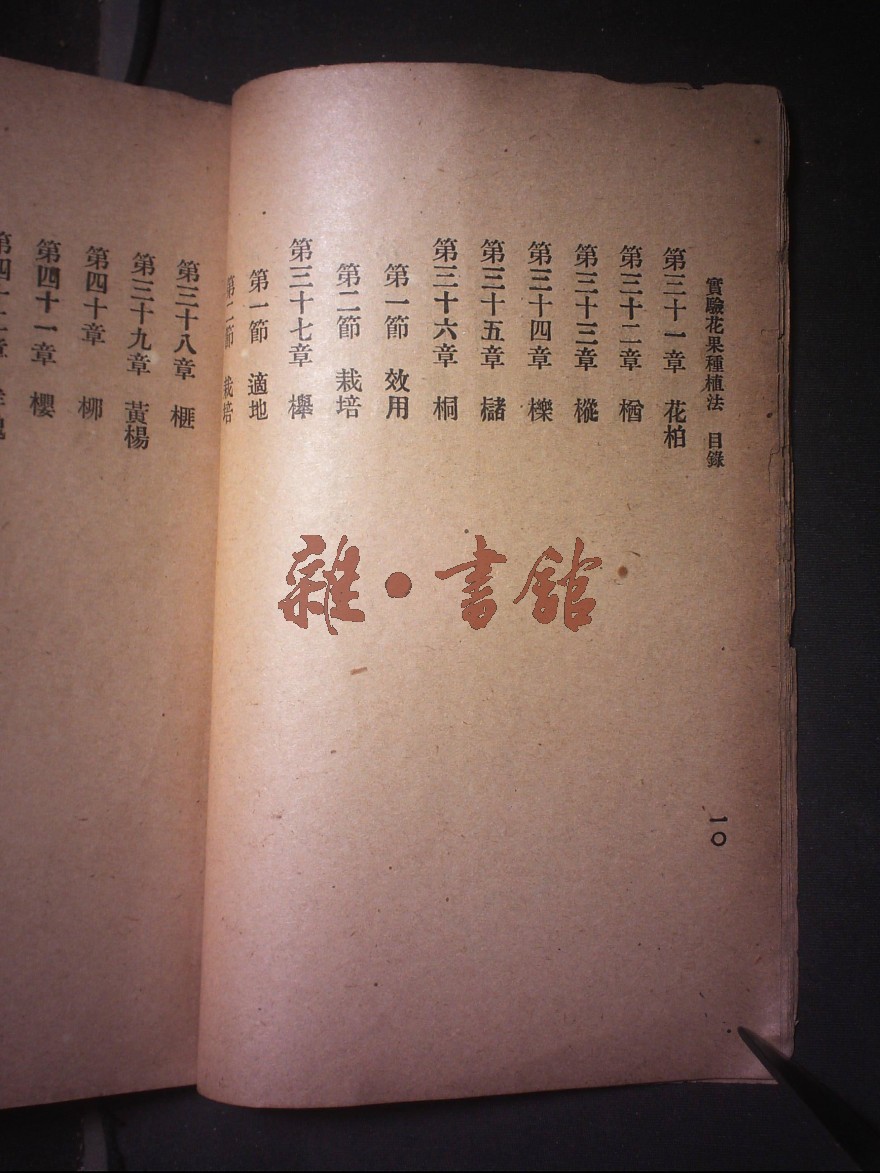 實驗花果種植法 目錄
一〇
第三十一章 花柏
第三十二章 楢
第三十三章 樅
第三十四章 櫟
第三十五章 櫧
第三十六章 桐
第一節 效用
第二節 栽培
第三十七章 櫸
第一節 適地
第二節 栽培
第三十八章 榧
第三十九章 黃楊
第四十章 柳
第四十一章 櫻
第四十二章
雜·書館